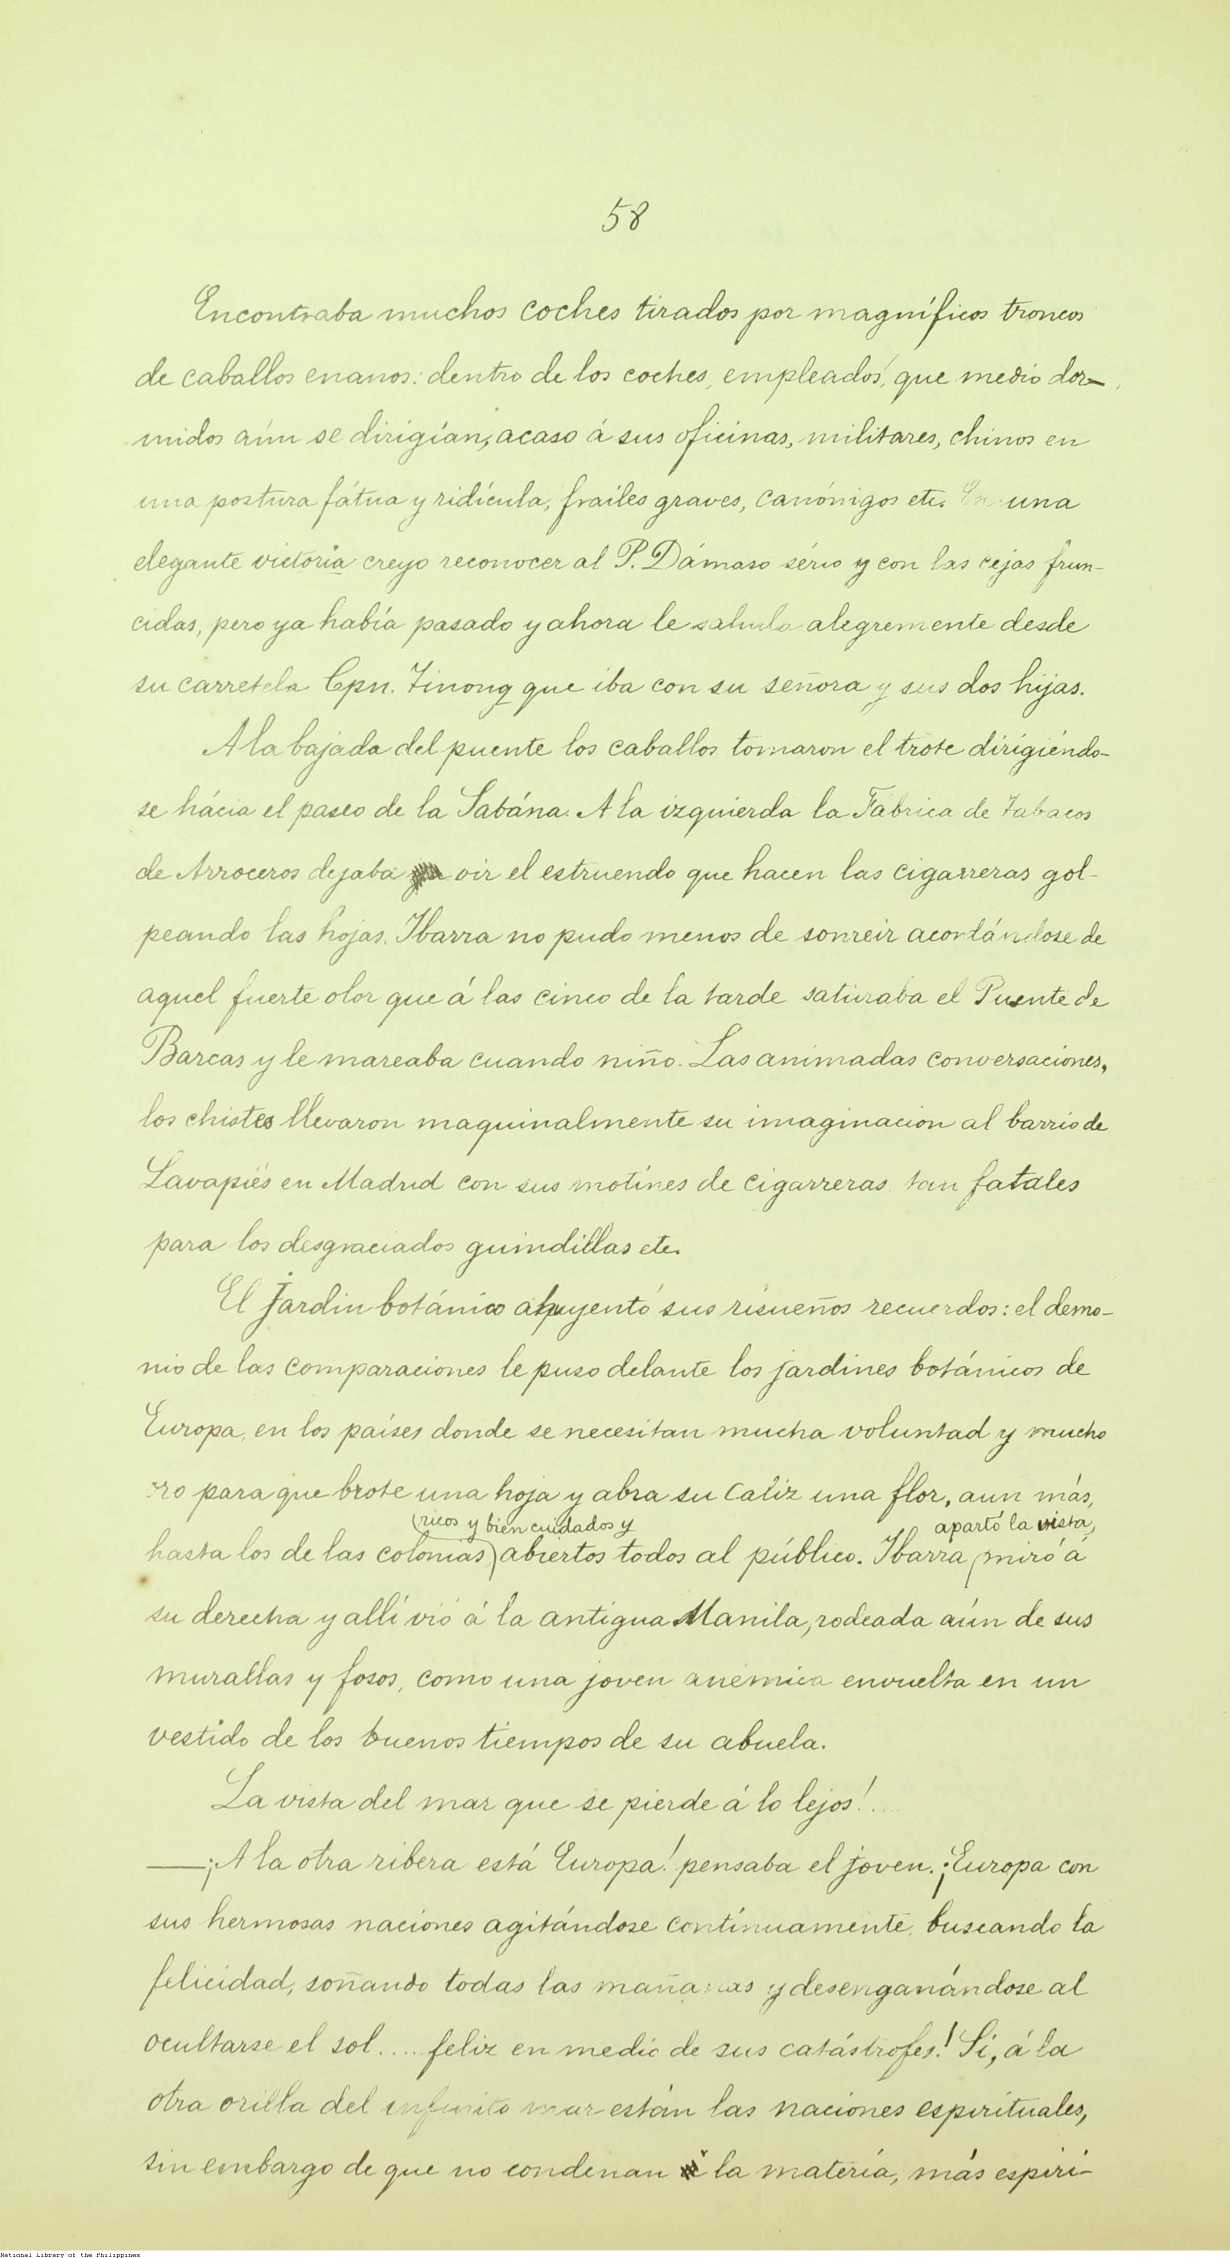 58
Encontraba muchos coches tirados por magníficos troncos
de caballos enanos: dentro de los coches, empleados, que medio dor-
midos aún se dirigían, acaso á sus oficinas, militares, chinos en
una postura fátua y ridícula, frailes graves, canónigos etc. En una
elegante victoria creyo reconocer al P. Dámaso sério y con las cejas frun-
cidas, pero ya había pasado y ahora le saluda alegremente desde
su carretela Cpn. Tinong que iba con su señora y sus dos hijas.
A la bajada del puente los caballos tomaron el trote dirigiéndo-
se hácia el paseo de la Sabána. A la izquierda la Fábrica de Tabacos
de Arroceros dejaba oir el estruendo que hacen las cigarreras gol-
peando las hojas. Ibarra no pudo menos de sonreir acordándose de
aquel fuerte olor que á las cinco de la tarde saturaba el Puente de
Barcas y le mareaba cuando niño. Las animadas conversaciones,
los chistes llevaron maquinalmente su imaginacion al barrio de
Lavapiés en Madrid con sus motines de cigarreras tan fatales
para los desgraciados guindillas etc.
El Jardin botánico ahuyentó sus risueños recuerdos: el demo-
nio de las comparaciones le puso delante los jardines botánicos de
Europa, en los países donde se necesitan mucha voluntad y mucho
oro para que brote una hoja y abra su caliz una flor, aun más,
ricos y bien cuidados y apartó la vista,
hasta los de las colonias abiertos todos al público. Ibarra miró á
su derecha y allí vió á la antigua Manila, rodeada aún de sus
murallas y fosos, como una joven anémica envuelta en un
vestido de los buenos tiempos de su abuela.
La vista del mar que se pierde á lo lejos!....
—¡A la otra ribera está Europa! pensaba el joven. ¡Europa con
sus hermosas naciones agitándose contínuamente, buscando la
felicidad, soñando todas las mañanas y desengañándose al
ocultarse el sol..... feliz en medio de sus catástrofes! Sí, á la
otra orilla del infinito mar están las naciones espirituales,
sin embargo de que no condenan la materia, más espiri-
National Library of the Philippines